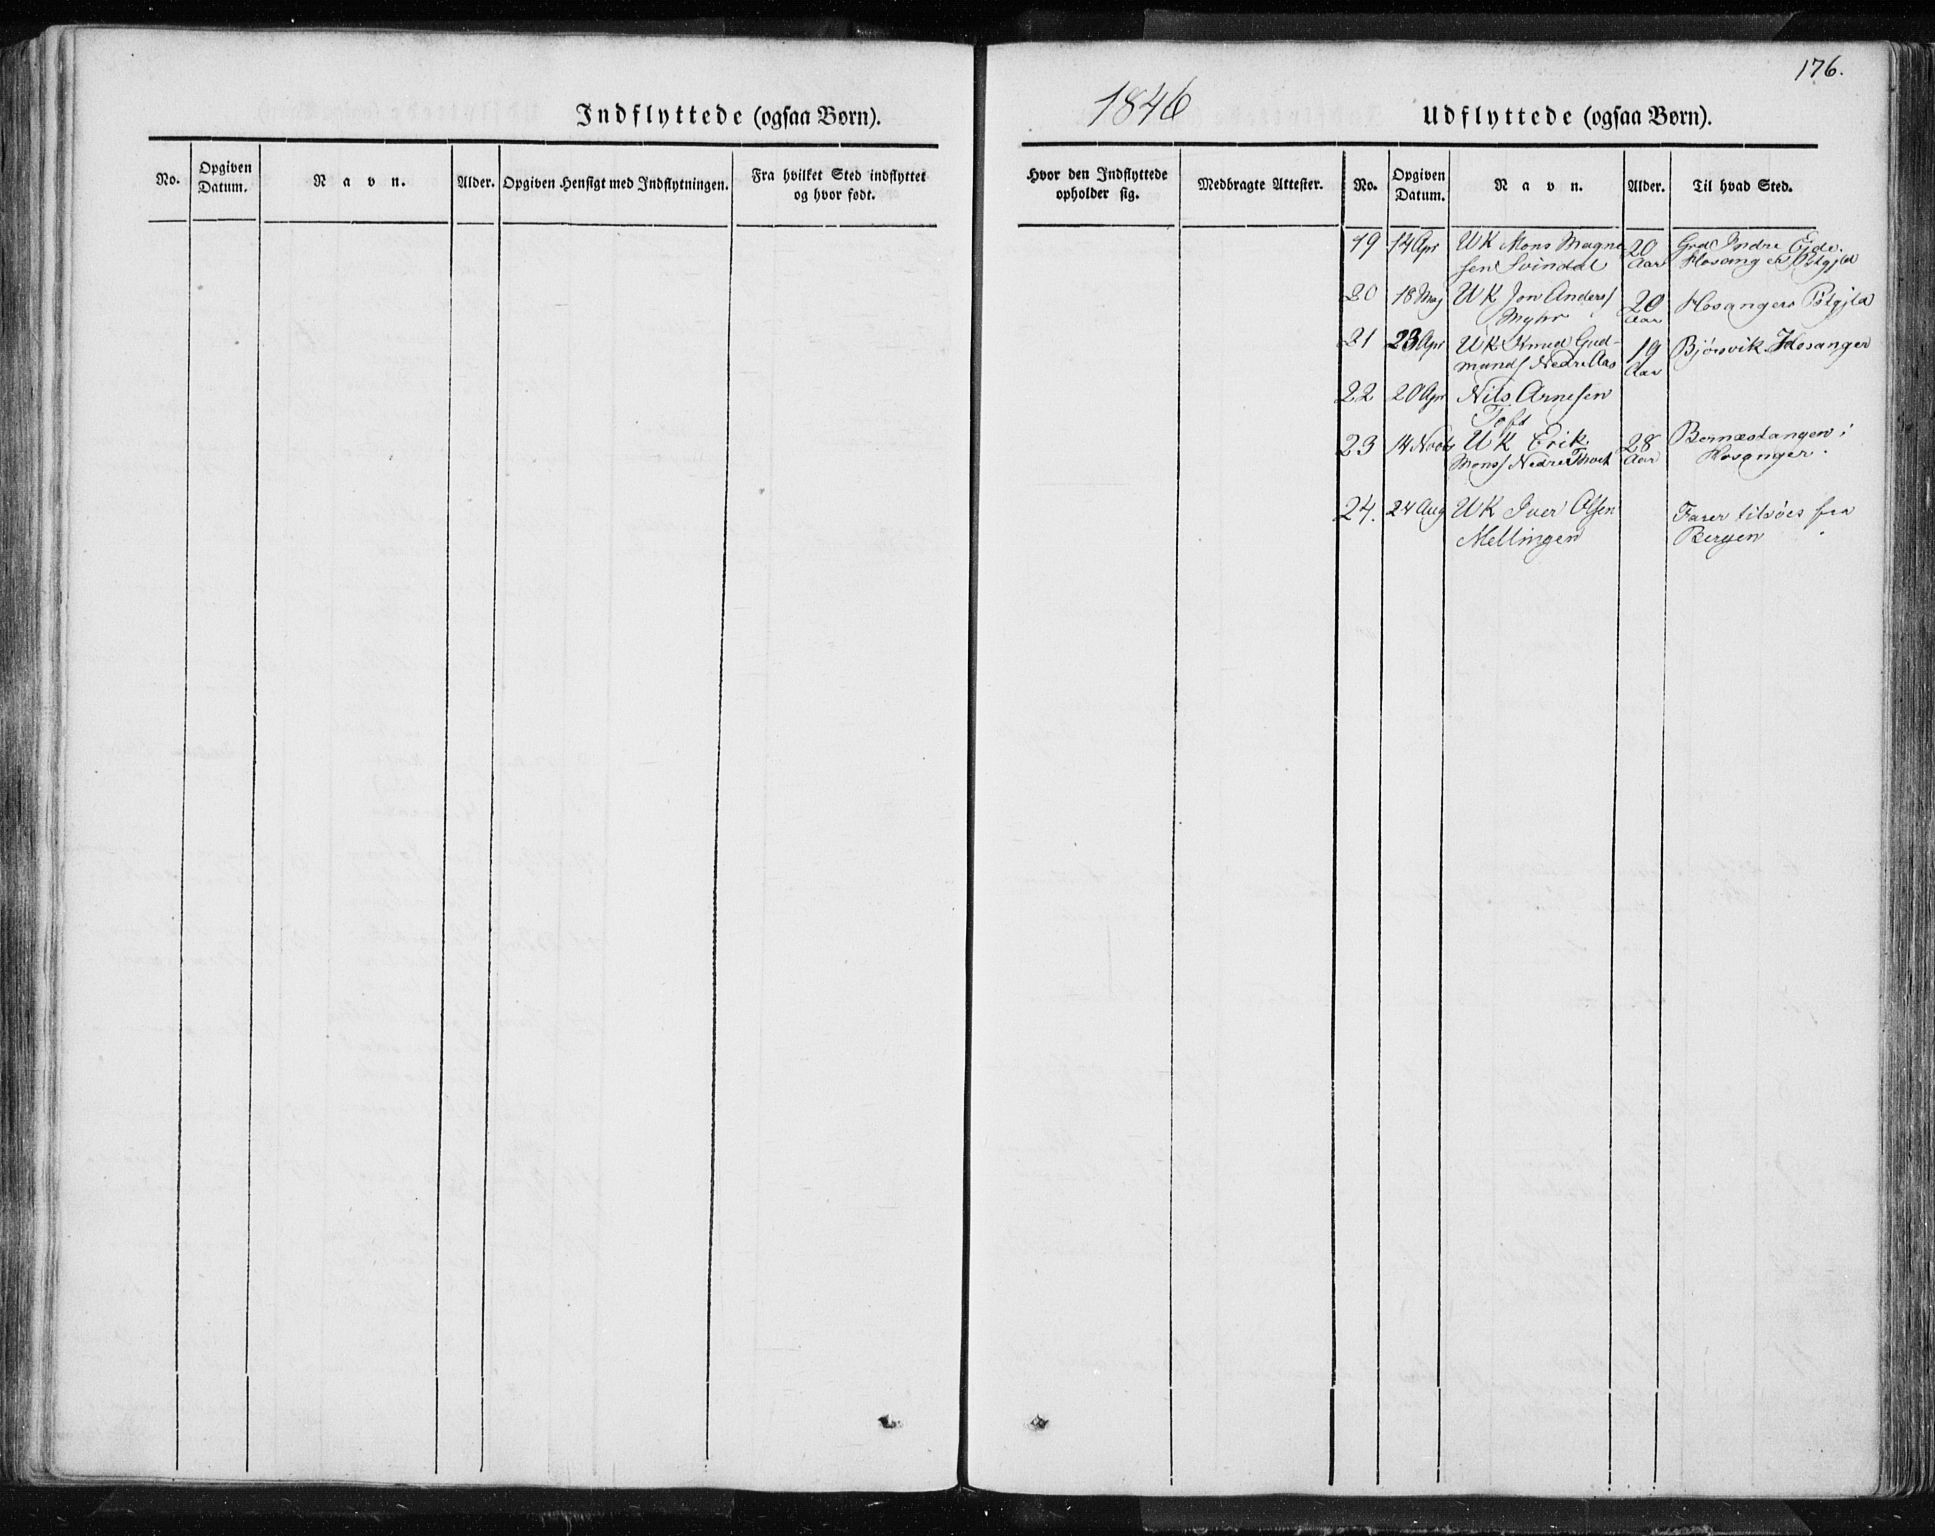 176.
1846
Indflyttede (ogsaa Børn).
Udflyttede (ogsaa Børn).
No.
Opgiven Datum.
Navn.
Alder.
Opgiven Hensigt med Indflytningen.
Fra hvilket Sted indflyttet og hvor født.
Hvor den Indflyttede opholder sig.
Medbragte Attester.
No.
Opgiven Datum.
Navn.
Alder.
Til hvad Sted.
19 14 Apr UK Mons Magne 20 Grd Indre Eide.
sen Svindal Aar Hosanger Pstgjld
20 18 Maj UK Jon Anders 20 Hosangers Pstgjld
Myhr Aar
21 23 Apr UK Knud Gud- 19 Bjørsvik Hosanger
munds Nedre Aas Aar
22 20 Apr Nils Arnesen
Toft
23 14 Novb UK Erik 28 Bernæstangen i
Mons Nedre Aar Hosanger.
24. 24 Aug UK Iver Olsen Farer tilsøes fra
Mellingen Bergen.